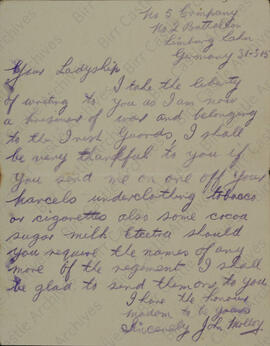 No 5 Company
No 2 Battalion
Limburg Lahn
Germany 31-3-15
Your Ladyship
I take the liberty
of writing to you as I am now
a prisoner of war and belonging
to the Irish Guards, I shall
be very thankful to you if
you send me on one off your
parcels underclothing tobacco
or cigarettes also some cocoa
sugar milk Etcetra should
you require the names of any
more of the regement I shall
be glad to send them on to you
I have the honour
madom to be yours
Sincerely John Molloy